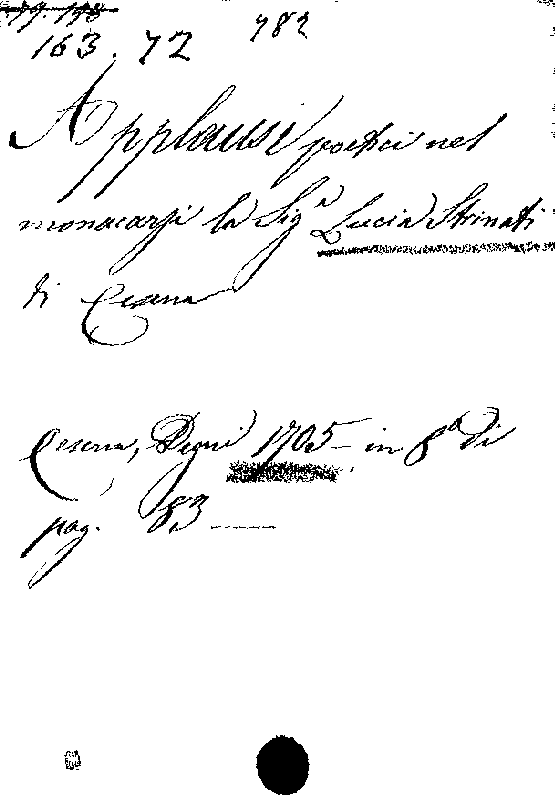 79. 198
163. 72 782
Applausi poetici nel
monacarsi la Sig.a Lucia Strinati
di Cesena
Cesena, Degni 1705 - in 8° di
pag. 83